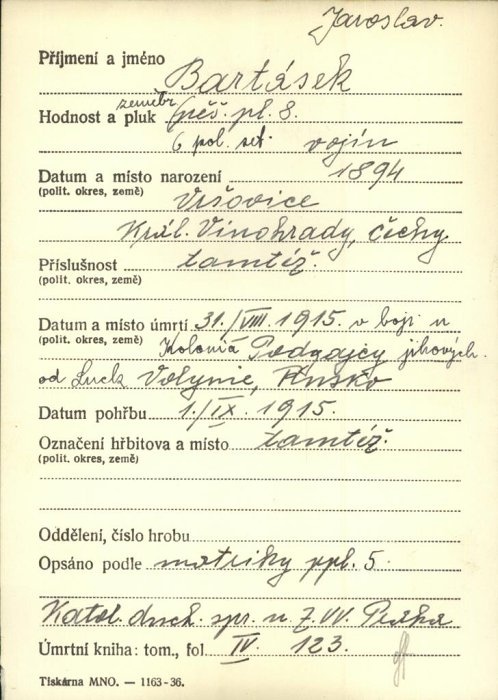 Jaroslav.
Příjmení a jméno
Bartásek
zeměbr.
Hodnost a pluk pěš. pl. 8.
6 pol. set. vojín
Datum a místo narození 1894
(polit. okres, země) Vršovice
Král. Vinohrady, Čechy
Příslušnost tamtéž.
(polit. okres, země)
Datum a místo úmrtí 31./VIII. 1915. v boji u
(polit. okres, země) Kolonia Podgajcy jihových.
od Luck Volynie, Rusko
Datum pohřbu 1./IX. 1915.
Označení hřbitova a místo tamtéž.
(polit. okres, země)
Oddělení, číslo hrobu
Opsáno podle matriky ppl. 5
Katol. duch. spr. u Z.VV. Praha
Úmrtní kniha: tom., fol IV. 123.
Tiskárna MNO. — 1163-36.